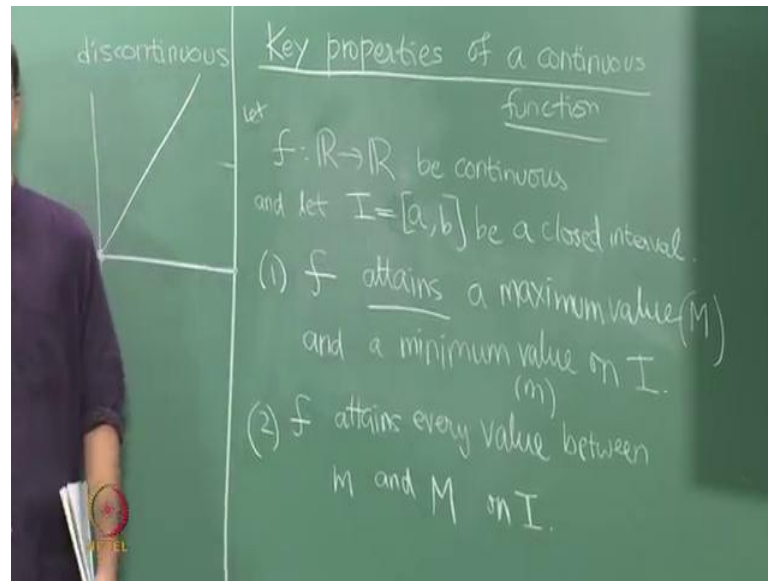 discontinuous
Key properties of a continuous
function
Let
f : ℝ→ℝ be continuous
and let I=[a,b] be a closed interval.
(1) f attains a maximum value (M)
and a minimum value on I.
(m)
(2) f attains every value between
m and M on I.